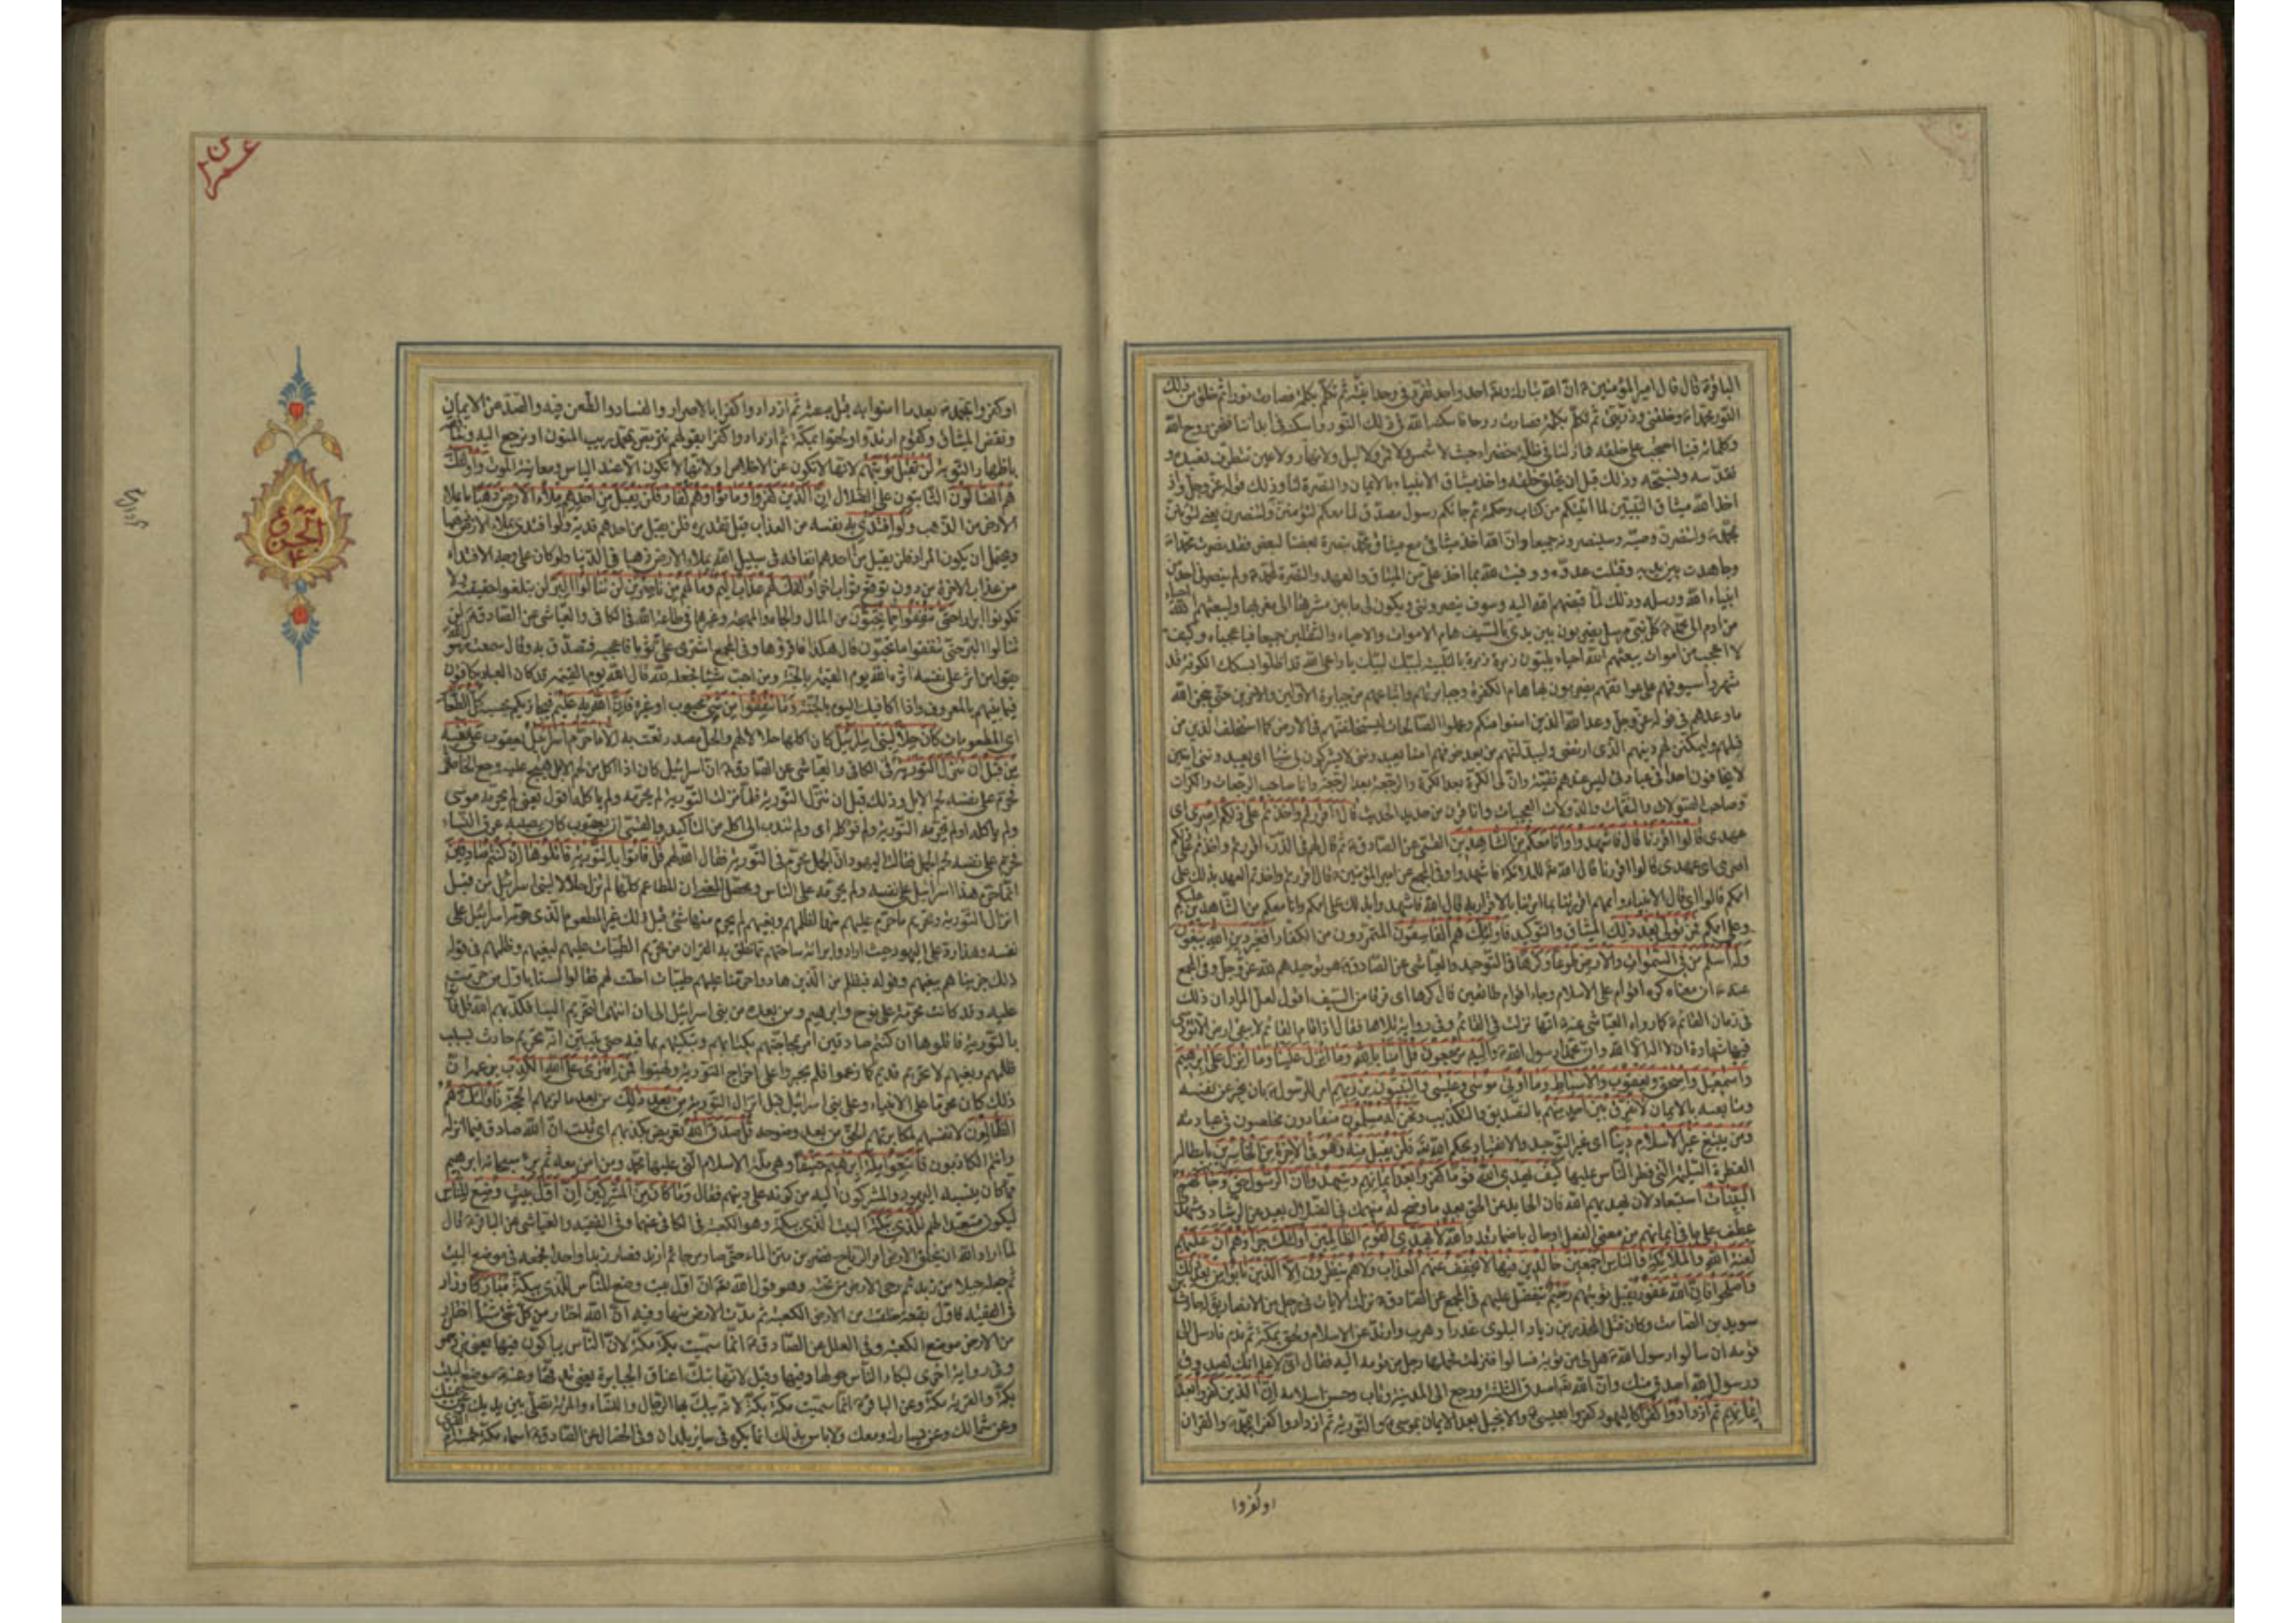 الباقرة قال قال امير المؤمنين ان الله تبارك وتع احد واحد تفرد في وحدانيته ثم تكلم بكلمة فصارت نورا ثم خلق من ذلك
النور محمدا وخلقني وذريتي ثم تكلم بكلمة فصارت روحا فاسكنه الله في ذلك النور واسكنه في ابداننا فنحن روح الله
وكلماته فبنا احتجب على خلقه فما زلنا في ظلة خضراء حيث لا شمس ولا قمر ولا ليل ولا نهار ولا عين تطرف نعبده و
نقدسه ونسبحه وذلك قبل ان يخلق خلقه واخذ ميثاق الانبياء بالايمان والنصرة لنا وذلك قوله عز وجل واذ
اخذ الله ميثاق النبيين لما اتيتكم من كتاب وحكمة ثم جاءكم رسول مصدق لما معكم لتؤمنن به ولتنصرنه يعني لتؤمنن
بمحمد ولتنصرن وصيه وسينصرونه جميعا وان الله اخذ ميثاقي مع ميثاق محمد بنصرة بعضنا لبعض فقد نصرت محمدا
وجاهدت بين يديه وقتلت عدوه ووفيت لله بما اخذ علي من الميثاق والعهد والنصرة لمحمد ولم ينصرني احد من
انبياء الله ورسله وذلك لما قبضهم الله اليه وسوف ينصرونني ويكون لي ما بين مشرقها الى مغربها وليبعثهم الله احياء
من ادم الى محمد كل نبي مرسل يضربون بين يدي بالسيف هام الاموات والاحياء والثقلين جميعا فيا عجباه وكيف
لا اعجب من اموات يبعثهم الله احياء يلبون زمرة زمرة بالتلبية لبيك لبيك يا داعي الله قد اظلوا بسكك الكوفة قد
شهروا سيوفهم على عواتقهم يضربون بها هام الكفرة وجبابرتهم واتباعهم من جبابرة الاولين والاخرين حتى ينجز الله
ما وعدهم في قوله عز وجل وعد الله الذين امنوا منكم وعملوا الصالحات ليستخلفنهم في الارض كما استخلف الذين من
قبلهم وليمكنن لهم دينهم الذي ارتضى وليبدلنهم من بعد خوفهم امنا يعبدونني لا يشركون بي شيئا اي يعبدونني امنين
لا يخافون احدا في عبادتي ليس عندهم تقية وان لي الكرة بعد الكرة والرجعة بعد الرجعة وانا صاحب الرجعات والكرات
وصاحب الصولات والنقمات والدولات العجيبات وانا قرن من حديد الحديث قال ءاقررتم واخذتم على ذلكم اصري اي
عهدي قالوا اقررنا قال فاشهدوا وانا معكم من الشاهدين القمي عن الصادق ثم قال لهم في الذر ءاقررتم واخذتم على ذلكم
اصري اي عهدي قالوا اقررنا قال الله للملائكة فاشهدوا وفي المجمع عن امير المؤمنين قال ءاقررتم واخذتم العهد بذلك على
اممكم قالوا اي قال الانبياء واممهم اقررنا بما امرتنا بالاقرار به قال الله فاشهدوا بذلك على اممكم وانا معكم من الشاهدين عليكم
وعلى اممكم فمن تولى بعد ذلك الميثاق والتوكيد فاولئك هم الفاسقون المتمردون من الكفار افغير دين الله يبغون
وله اسلم من في السموات والارض طوعا وكرها في التوحيد والعياشي عن الصادق هو توحيدهم لله عز وجل وفي المجمع
عنه ان معناه كره اقوام على الاسلام وجاء اقوام طائعين قال كرها اي فرقا من السيف اقول لعل المراد ان ذلك
في زمان القائم كما رواه العياشي عنه انها نزلت في القائم وفي رواية تلاها فقال اذا قام القائم لا يبقى ارض الا نودي
فيها شهادة ان لا اله الا الله وان محمدا رسول الله واليه يرجعون قل امنا بالله وما انزل علينا وما انزل على ابرهيم
واسمعيل واسحق ويعقوب والاسباط وما اوتي موسى وعيسى والنبيون من ربهم امر للرسول بان يخبر عن نفسه
ومتابعيه بالايمان لا نفرق بين احد منهم بالتصديق والتكذيب ونحن له مسلمون منقادون مخلصون في عبادته
ومن يبتغ غير الاسلام دينا اي غير التوحيد والانقياد لحكم الله فلن يقبل منه وهو في الاخرة من الخاسرين بابطاله
الفطرة السليمة التي فطر الناس عليها كيف يهدي الله قوما كفروا بعد ايمانهم وشهدوا ان الرسول حق وجاءهم
البينات استبعاد لان يهديهم الله فان الحايد عن الحق بعد ما وضح له منهمك في الضلال بعيد عن الرشاد وشهدوا
عطف على ما في ايمانهم من معنى الفعل او حال باضمار قد والله لا يهدي القوم الظالمين اولئك جزاؤهم ان عليهم
لعنة الله والملائكة والناس اجمعين خالدين فيها لا يخفف عنهم العذاب ولا هم ينظرون الا الذين تابوا من بعد ذلك
واصلحوا فان الله غفور يقبل توبتهم رحيم يتفضل عليهم في المجمع عن الصادق نزلت الايات في رجل من الانصار يق له حارث بن
سويد بن الصامت وكان قتل المجذر بن زياد البلوي غدرا وهرب وارتد عن الاسلام ولحق بمكة ثم ندم فارسل الى
قومه ان سالوا رسول الله هل لي من توبة فسالوا فنزلت فحملها رجل من قومه اليه فقال اني لاعلم انك لصدوق
ورسول الله اصدق منك وان الله تعالى اصدق الثلثة ورجع الى المدينة وتاب وحسن اسلامه ان الذين كفروا بعد
ايمانهم ثم ازدادوا كفرا كاليهود كفروا بعيسى والانجيل بعد الايمان بموسى والتورية ثم ازدادوا كفرا بمحمد والقران
او كفروا
او كفروا بمحمد بعد ما امنوا به قبل مبعثه ثم ازدادوا كفرا بالاصرار والفساد والطعن فيه والصد عن الايمان
ونقض الميثاق وكقوم ارتدوا ولحقوا بمكة ثم ازدادوا كفرا بقولهم نتربص بمحمد ريب المنون او نرجع اليه وننافقه
باظهار التوبة لن تقبل توبتهم لانها لا تكون عن الاخلاص او لانها لا تكون الا عند الياس ومعاينة الموت واولئك
هم الضالون الثابتون على الضلال ان الذين كفروا وماتوا وهم كفار فلن يقبل من احدهم ملاء الارض ذهبا ما يملا
الارض من الذهب ولو افتدى به نفسه من العذاب قيل تقديره فلن يقبل من احدهم فدية ولو افتدى بملاء الارض ذهبا
ويحتمل ان يكون المراد فلن يقبل من احدهم انفاقه في سبيل الله بملاء الارض ذهبا في الدنيا ولو كان على وجه الافتداء
من عذاب الاخرة من دون توقع ثواب اخر اولئك لهم عذاب اليم وما لهم من ناصرين لن تنالوا البر لن تبلغوا حقيقته ولا
تكونوا ابرارا حتى تنفقوا مما تحبون من المال والجاه والمهجة وغيرها في طاعة الله في الكافي والعياشي عن الصادق لن
تنالوا البر حتى تنفقوا ما تحبون قال هكذا فاقراوها وفي المجمع اشترى علي ثوبا فاعجبه فتصدق به وقال سمعت رسول الله
يقول من اثر على نفسه اثره الله يوم القيمة بالجنة ومن احب شيئا فجعله لله قال الله يوم القيمة قد كان العباد يكافون
فيما بينهم بالمعروف وانا اكافيك اليوم بالجنة وما تنفقوا من شئ محبوب او غيره فان الله به عليم فيجازيكم بحسبه كل الطعام
اي المطعومات كان حلا لبني اسرائيل كان اكلها حلالا لهم والحل مصدر نعت به الا ما حرم اسرائيل يعقوب على نفسه
من قبل ان تنزل التورية في الكافي والعياشي عن الصادق ان اسرائيل كان اذا اكل من لحم الابل هيج عليه وجع الخاصرة
فحرم على نفسه لحم الابل وذلك قبل ان تنزل التورية فلما نزلت التورية لم يحرمه ولم ياكله اقول يعني لم يحرمه موسى
ولم ياكله او لم تحرمه التورية ولم تؤكله اي ولم تندب الى اكله من التاكيد والقمي ان يعقوب كان يصيبه عرق النساء
فحرم على نفسه لحم الجمل فقالت اليهود ان الجمل محرم في التورية فقال الله لهم قل فاتوا بالتورية فاتلوها ان كنتم صادقين
انما حرم هذا اسرائيل على نفسه ولم يحرمه على الناس ومحصل المعنى ان المطاعم كلها لم تزل حلالا لبني اسرائيل من قبل
انزال التورية وتحريم ما حرم عليهم منها لظلمهم وبغيهم لم يحرم منها شئ قبل ذلك غير المطعوم الذي حرمه اسرائيل على
نفسه وهذا رد على اليهود حيث ارادوا براءة ساحتهم بما نطق به القران من تحريم الطيبات عليهم لبغيهم وظلمهم في قوله
ذلك جزيناهم ببغيهم وقوله فبظلم من الذين هادوا حرمنا عليهم طيبات احلت لهم فقالوا لسنا باول من حرمت
عليه وقد كانت محرمة على نوح وابرهيم ومن بعده من بني اسرائيل الى ان انتهى التحريم الينا فكذبهم الله قل فاتوا
بالتورية فاتلوها ان كنتم صادقين امر بمحاجتهم بكتابهم وتبكيتهم بما فيه حتى يتبين انه تحريم حادث بسبب
ظلمهم وبغيهم لا تحريم قديم كما زعموا فلم يجسروا على اخراج التورية وبهتوا فمن افترى على الله الكذب بزعمه ان
ذلك كان محرما على الانبياء وعلى بني اسرائيل قبل انزال التورية من بعد ذلك من بعد ما لزمهم الحجة فاولئك هم
الظالمون لانفسهم لمكابرتهم الحق من بعد وضوحه قل صدق الله تعريض بكذبهم اي ثبت ان الله صادق فيما انزله
وانتم الكاذبون فاتبعوا ملة ابرهيم حنيفا وهي ملة الاسلام التي عليها محمد ومن امن معه ثم برئ سبحانه ابرهيم
مما كان ينسبه اليهود والمشركون اليه من كونه على دينهم فقال وما كان من المشركين ان اول بيت وضع للناس
ليكون متعبدا لهم للذي ببكة البيت الذي ببكة وهو الكعبة في الكافي عنهما وفي الفقيه والعياشي عن الباقر قال
لما اراد الله ان يخلق الارض امر الرياح فضربن متن الماء حتى صار موجا ثم ازبد فصار زبدا واحدا فجمعه في موضع البيت
ثم جعله جبلا من زبد ثم دحى الارض من تحته وهو قول الله ان اول بيت وضع للناس للذي ببكة مباركا وزاد
في الفقيه فاول بقعة خلقت من الارض الكعبة ثم مدت الارض منها وفيه ان الله اختار من كل شئ شيئا اختار
من الارض موضع الكعبة وفي العلل عن الصادق انما سميت مكة بكة لان الناس يبكون فيها يعني يزدحمون
وفي رواية اخرى لبكاء الناس حولها وفيها وقيل لانها تبك اعناق الجبابرة يعني تدقها وعنه موضع البيت
بكة والقرية مكة وعن الباقر انما سميت مكة بكة لانه يبك بها الرجال والنساء والمراة تصلي بين يديك وعن يمينك
وعن شمالك وعن يسارك ومعك ولا باس بذلك انما يكره في سائر البلدان وفي الخصال عن الصادق اسماء مكة خمسة ام القرى
الجزو